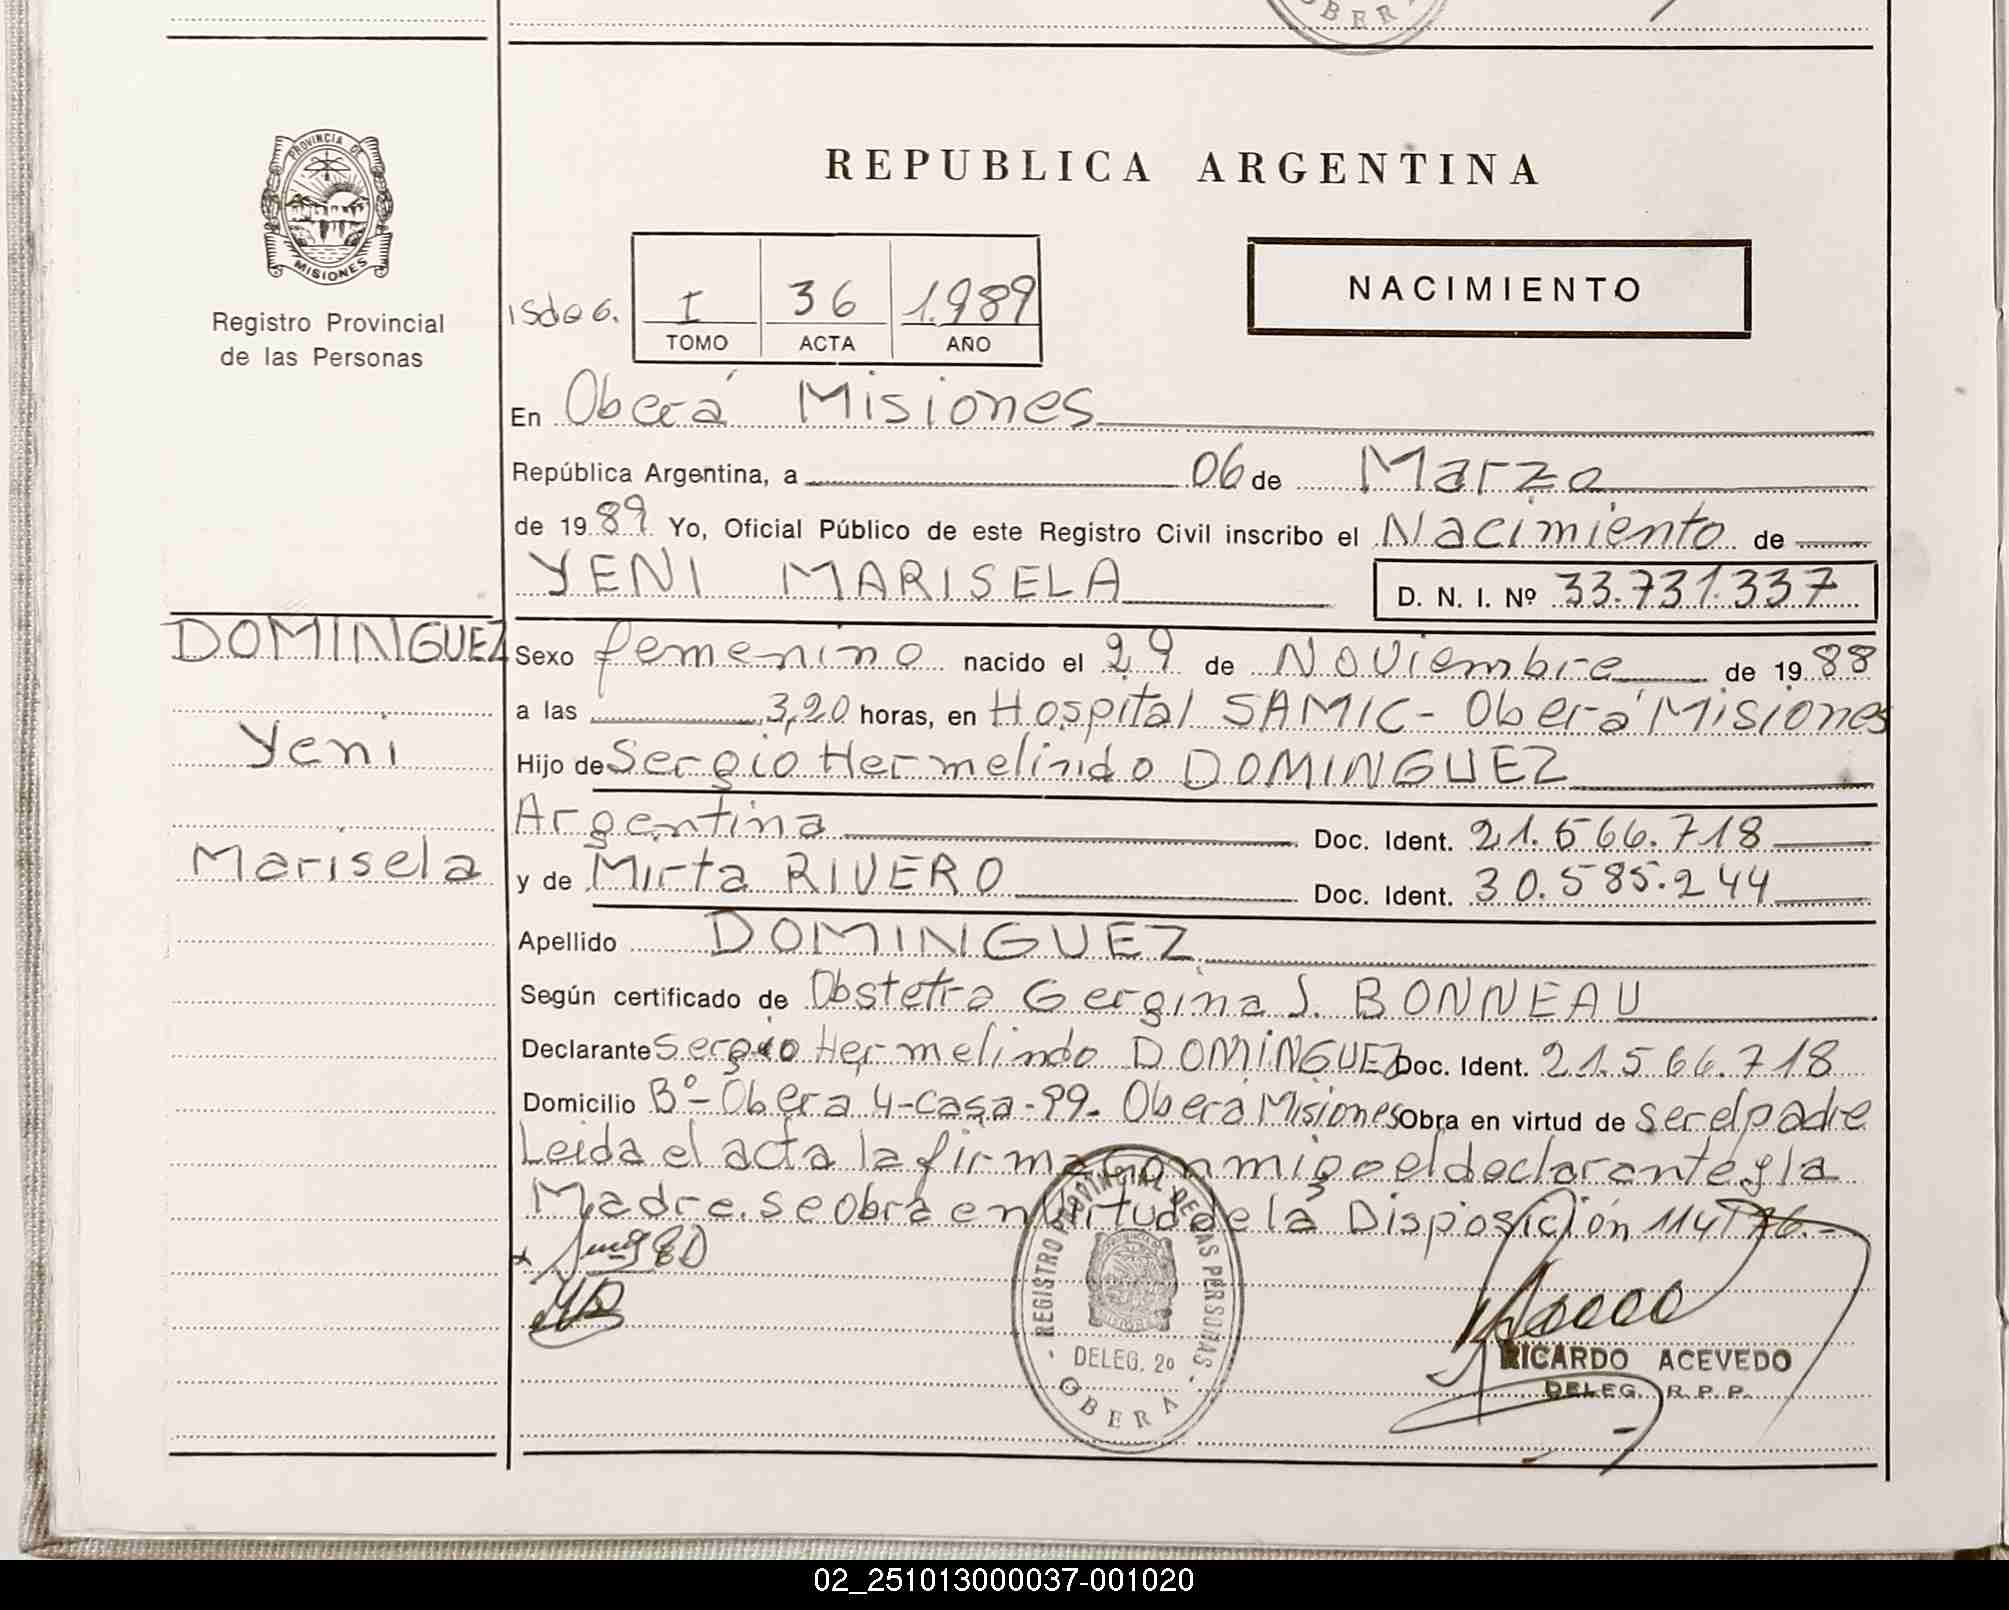 OBERA
PROVINCIA DE
MISIONES
Registro Provincial
de las Personas
REPUBLICA ARGENTINA
NACIMIENTO
I 36 1.989
TOMO ACTA AÑO
En Oberá Misiones
República Argentina, a 06 de Marzo
de 1989 Yo, Oficial Público de este Registro Civil inscribo el Nacimiento de
YENI MARISELA D. N. I. Nº 33.731.337
DOMINGUEZ
Yeni
Marisela
Sexo femenino nacido el 29 de Noviembre de 1988
a las 3,20 horas, en Hospital SAMIC - Oberá Misiones
Hijo de Sergio Hermelindo DOMINGUEZ
Argentina Doc. Ident. 21.566.718
y de Mirta RIVERO Doc. Ident. 30.585.244
Apellido DOMINGUEZ
Según certificado de Obstetra Gergina J. BONNEAU
Declarante Sergio Hermelindo DOMINGUEZ Doc. Ident. 21.566.718
Domicilio Bº - Obera 4 - casa - 99 - Obera Misiones Obra en virtud de ser el padre
Leida el acta la firma conmigo el declarante y la
Madre. se obra en virtud de la Disposición 114/76.-
REGISTRO PROVINCIAL DE LAS PERSONAS
MISIONES
DELEG. 2º
OBERA
RICARDO ACEVEDO
DELEG. R. P. P.
02_251013000037-001020